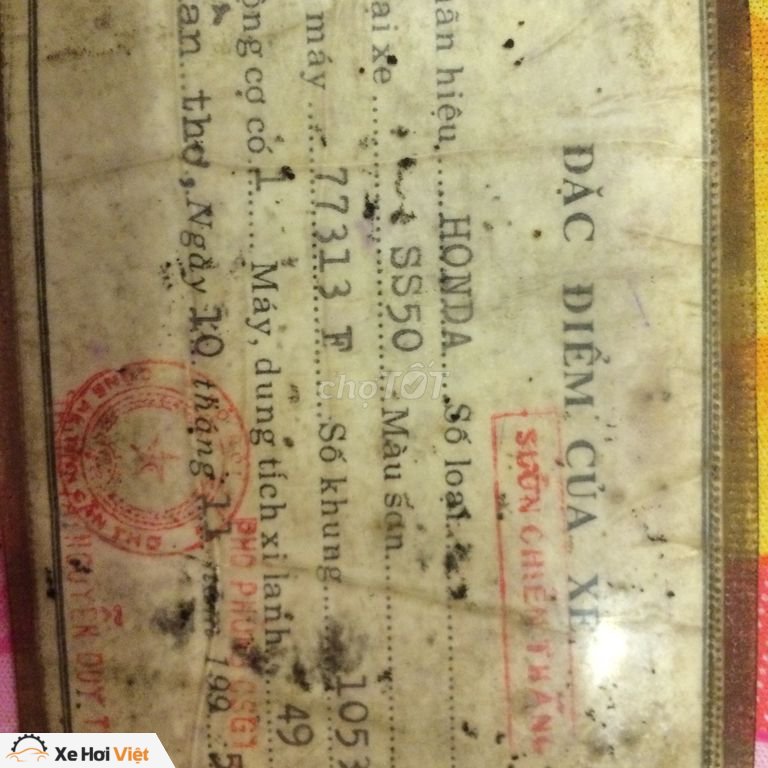 ĐẶC ĐIỂM CỦA XE
SƯỜN CHIẾN THẮNG
hãn hiệu....HONDA....Số loại
ại xe......SS50....Màu sơn
máy.....77313 F...Số khung....1053
ộng cơ có..1.....Máy, dung tích xi lanh...49
an thơ, Ngày 10 tháng 11 năm 199 5
PHÓ PHÒNG CSGT
NGUYỄN DUY T
chợTỐT
Xe Hơi Việt